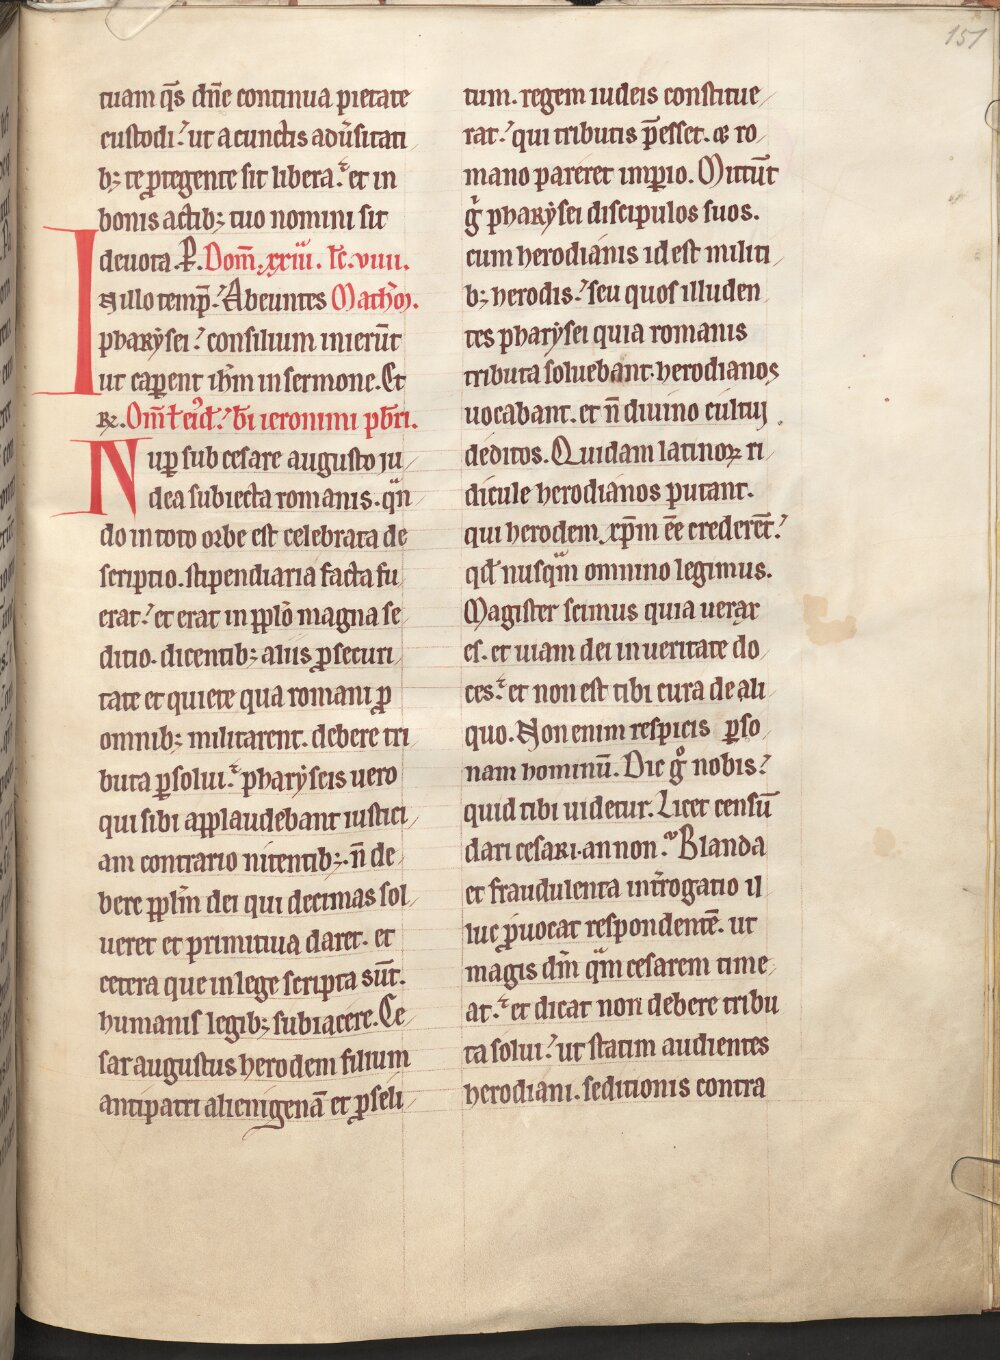 151
tuam q̄s dn̄e continua pietate
custodi? ut a cunctis aduͤsitati
b; te ꝓtegente sit libera. et in
bonis actib; tuo nomini sit
deuota. P̲. Dom̄. xxiii. lc̄. viiii.
In illo temꝑ. Abeuntes Mathm̄.
pharysei? consilium inierūt
ut caꝑent ih̄m in sermone. Et
R̲. Om̄l eiꝰd. bī ieronimi pbr̄i.
Nuꝑ sub cesare augusto iu
dea subiecta romanis. qn̄
do in toto orbe est celebrata de
scriptio. stipendiaria facta fu
erat? et erat in ꝑplō magna se
ditio. dicentib; aliis ꝓ securi
tate et quiete qua romani ꝓ
omnib; militarent. debere tri
buta ꝑsolui. pharyseis uero
qui sibi applaudebant iustici
am contrario nitentib;. n̄ de
bere pplm̄ dei qui decimas sol
ueret et primitiua daret. et
cetera que in lege scripta sūt.
humanis legib; subiacere. Ce
sar augustus herodem filium
antipatri alienigenā et ꝓseli
tum. regem iudeis constitue
rat? qui tributis p̄esset. & ro
mano pareret imꝑio. Mittūt
gͦ pharysei discipulos suos.
cum herodianis id est militi
b; herodis? seu quos illuden
tes pharysei quia romanis
tributa soluebant. herodianos
uocabant. et n̄ diuino cultui
deditos. Quidam latinoꝝ ri
dicule herodianos putant.
qui herodem xp̄m ēe crederēt?
qd̄ nusqͣm omnino legimus.
Magister scimus quia uerax
es. et uiam dei in ueritate do
ces. et non est tibi cura de ali
quo. Non enim respicis ꝑso
nam hominū. Dic gͦ nobis?
quid tibi uidetur. Licet censū
dari cesari. an non? Blanda
et fraudulenta int̄rogatio il
luc ꝓuocat respondentē. ut
magis dm̄ qͣm cesarem time
at. et dicat non debere tribu
ta solui? ut statim audientes
herodiani. seditionis contra